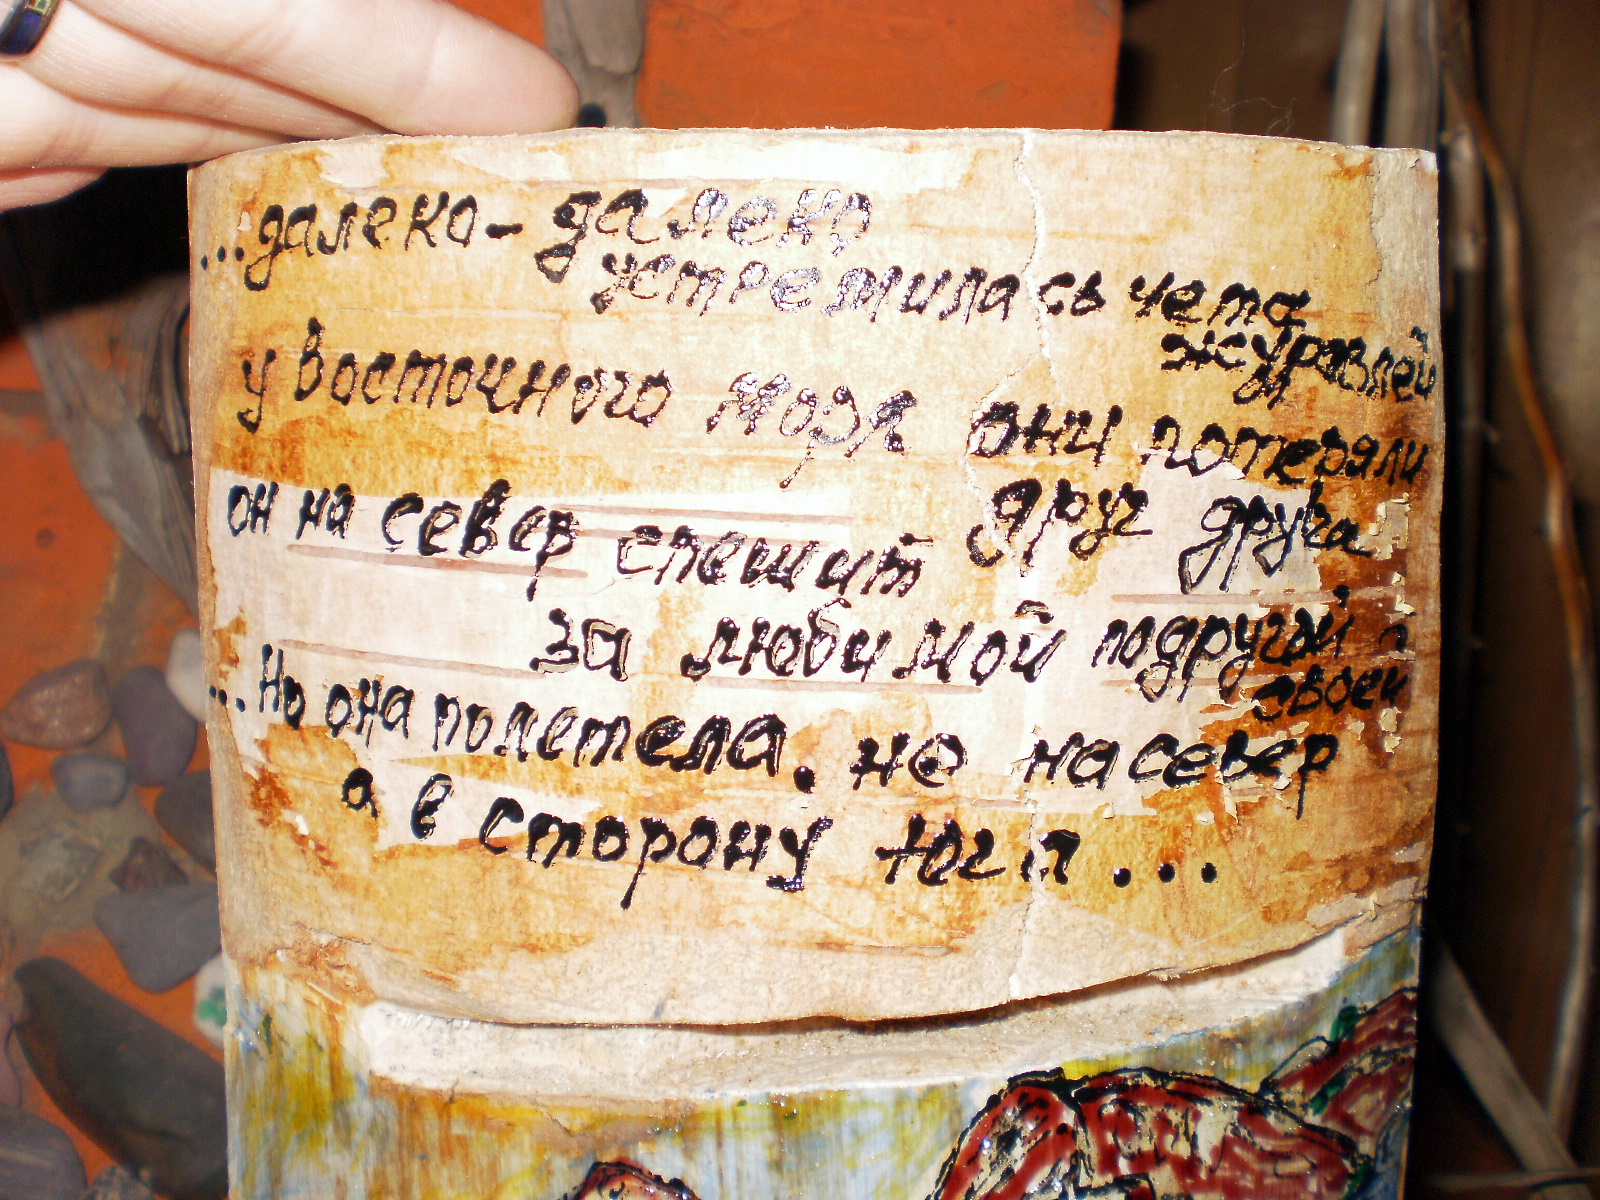 ...далеко-далеко
устремилась чета
журавлей
у восточного моря они потеряли
друг друга
он на север спешит
за любимой подругой
своей
...Но она полетела. не на север
а в сторону юга...